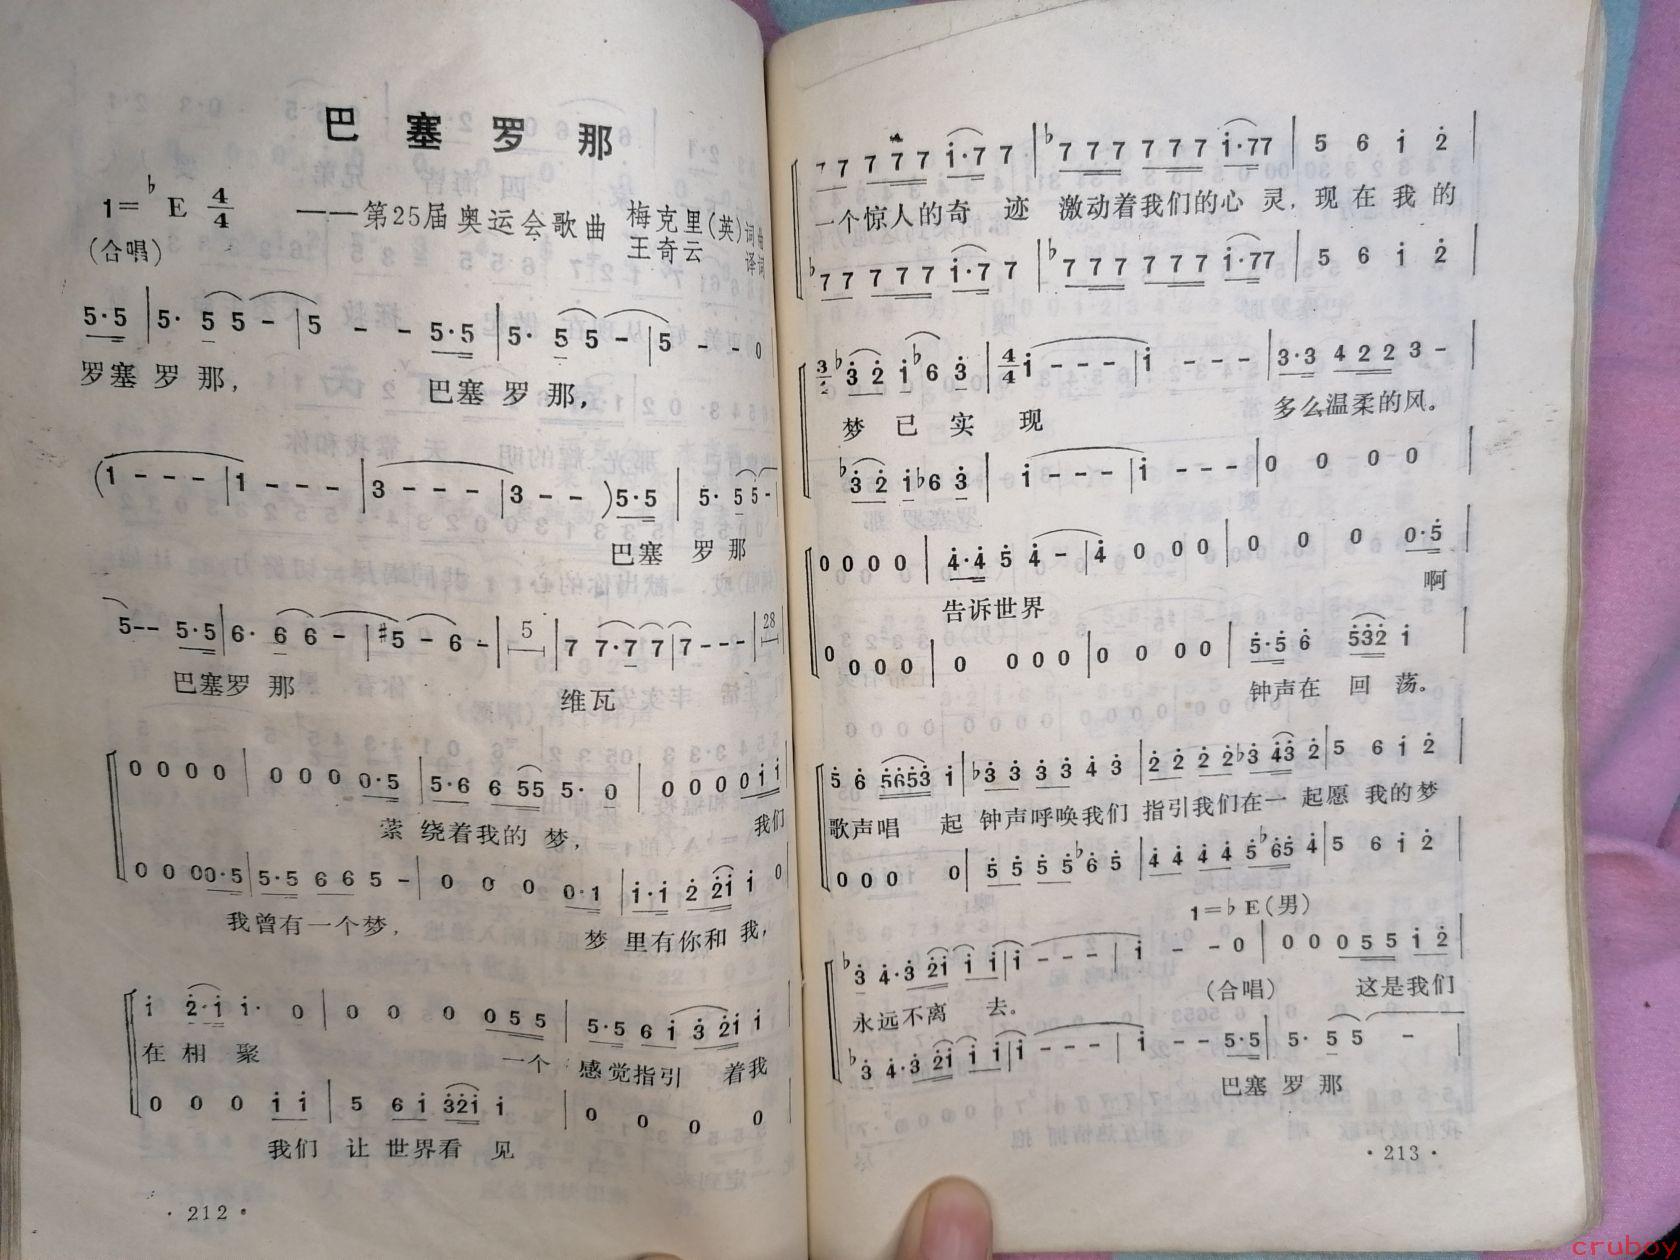 巴塞罗那
1=♭E 4/4
——第25届奥运会歌曲 梅克里(英)词曲
(合唱) 王奇云 译词
5·5 | 5· 5 5 - | 5 - - 5·5 | 5· 5 5 - | 5 - - 0
罗塞 罗 那， 巴塞 罗 那，
(1 - - - | 1 - - - | 3 - - - | 3 - - ) 5·5 | 5· 5 5 -
巴塞 罗 那
5 - - 5·5 | 6· 6 6 - | #5 - 6 - | 5 | 7 7·7 7 | 7 - - - | 28
巴塞罗 那 维瓦
0 0 0 0 | 0 0 0 0·5 | 5·6 6 55 5· 0 | 0 0 0 0 i i
萦 绕着我的 梦， 我们
0 0 0 0·5 | 5·5 6 6 5 - | 0 0 0 0·1 | i·i 2 2i i 0
我曾有一个梦， 梦 里有你和 我，
i 2·i i· 0 | 0 0 0 0 5 5 | 5·5 6 i 3 2i i
在 相 聚 一个 感觉指引 着我
0 0 0 i i | 5 6 i 32i i | 0 0 0 0
我们 让 世界看 见
·212·
7 7 7 7 7 i·7 7 | ♭7 7 7 7 7 7 i·77 | 5 6 i 2
一个惊人的奇 迹 激动着我们的心 灵，现 在 我 的
♭7 7 7 7 7 i·7 7 | ♭7 7 7 7 7 7 i·77 | 5 6 i 2
♭3 2 i ♭6 3 | 4/4 i - - - | i - - - | 3·3 4 2 2 3 -
梦 已 实 现 多么温柔的风。
♭3 2 i ♭6 3 | i - - - | i - - - | 0 0 0 0
0 0 0 0 | 4·4 5 4 - | 4 0 0 0 | 0 0 0 0·5
告诉世界 啊
0 0 0 0 | 0 0 0 0 | 0 0 0 0 | 5·5 6 532 i
钟声在 回 荡。
5 6 5653 i | ♭3 3 3 3 4 3 | 2 2 2 2 ♭3 43 2 | 5 6 i 2
歌声唱 起 钟声呼唤我们 指引我们在一 起愿 我的梦
0 0 0 0 | 5 5 5 5 ♭6 5 | 4 4 4 4 5 ♭65 4 | 5 6 i 2
1=♭E(男)
♭3 4·3 2i i i i | i - - - | i - - 0 | 0 0 0 5 5 i 2
永远不离 去。 (合唱) 这是我们
♭3 4·3 2i i i i | i - - - | i - - 5·5 | 5· 5 5 -
巴塞 罗 那
·213·
cruboy